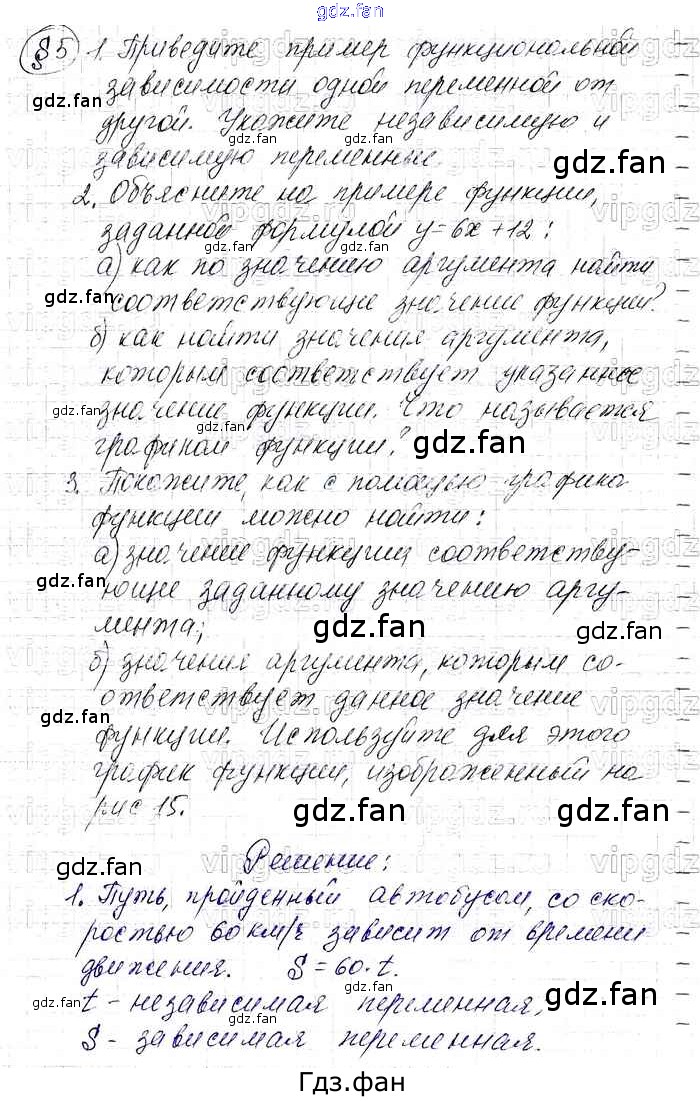 gdz.fan
§5 1. Приведите пример функциональной
зависимости одной переменной от
gdz.fan gdz.fan
другой. Укажите независимую и
зависимую переменные.
gdz.fan
2. Объясните на примере функции,
gdz.fan
заданной формулой y=6x+12:
gdz.fan
а) как по значению аргумента найти
gdz.fan
соответствующие значение функции?
б) как найти значения аргумента,
которым соответствует указанное
gdz.fan gdz.fan
значение функции. Что называется
графиком функции?
gdz.fan
3. Покажите, как с помощью графика
функции можно найти:
а) значение функции соответству-
gdz.fan gdz.fan
ющие заданному значению аргу-
мента;
gdz.fan gdz.fan
б) значения аргумента, которым со-
ответствует данное значение
gdz.fan gdz.fan
функции. Используйте для этого
график функции, изображенный на
рис 15.
gdz.fan gdz.fan
Решение:
gdz.fan
1. Путь, пройденный автобусом, со ско-
gdz.fan
ростью 60 км/ч зависит от времени
движения. S=60·t.
gdz.fan gdz.fan
t - независимая переменная,
gdz.fan
S - зависимая переменная.
Гдз.фан